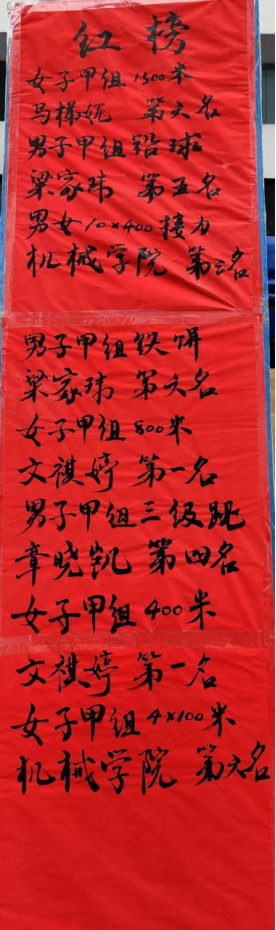 红榜
女子甲组1500米
马梯妮 第六名
男子甲组铅球
梁家玮 第五名
男女10×400接力
机械学院 第三名
男子甲组铁饼
梁家玮 第六名
女子甲组800米
文祺婷 第一名
男子甲组三级跳
章晓凯 第四名
女子甲组400米
文祺婷 第一名
女子甲组4×100米
机械学院 第六名